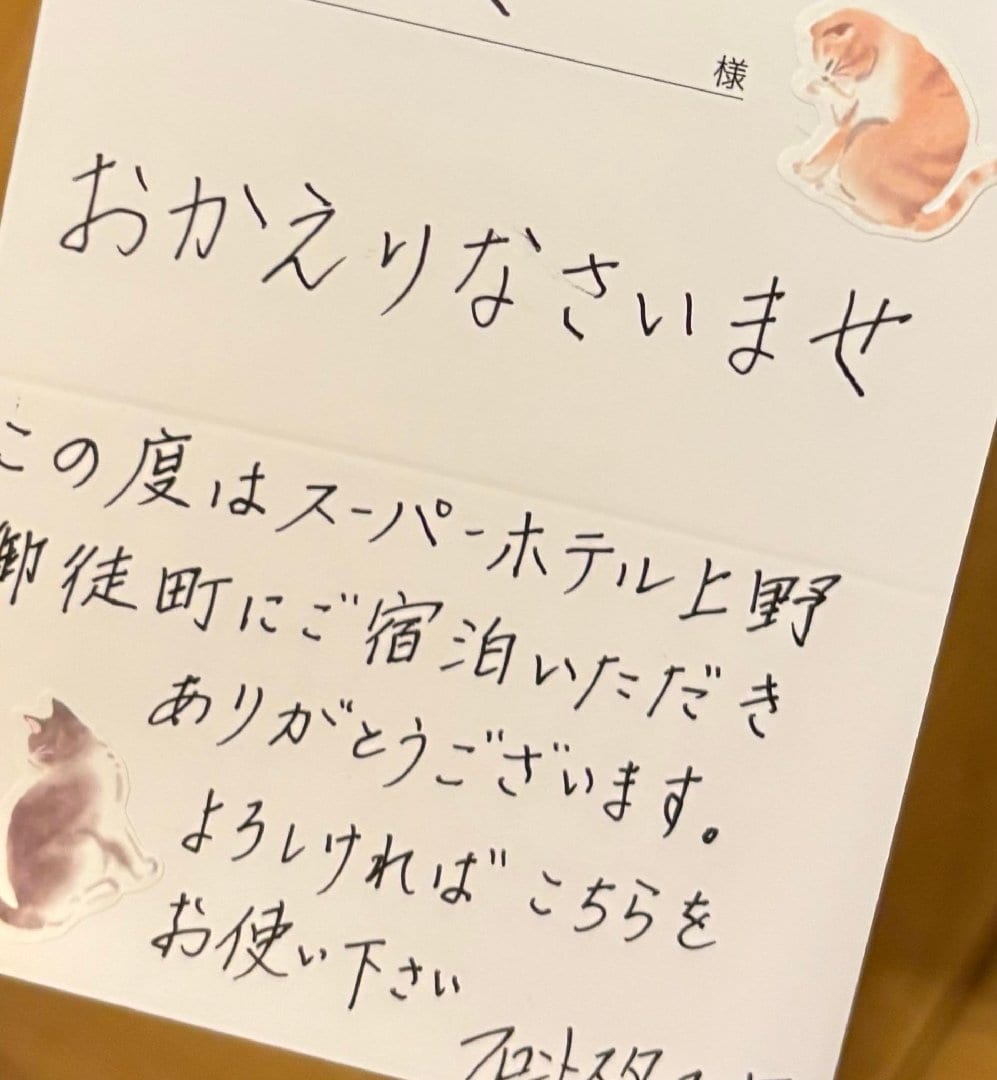 様
おかえりなさいませ
この度はスーパーホテル上野
御徒町にご宿泊いただき
ありがとうございます。
よろしければこちらを
お使い下さい
フロントスタ